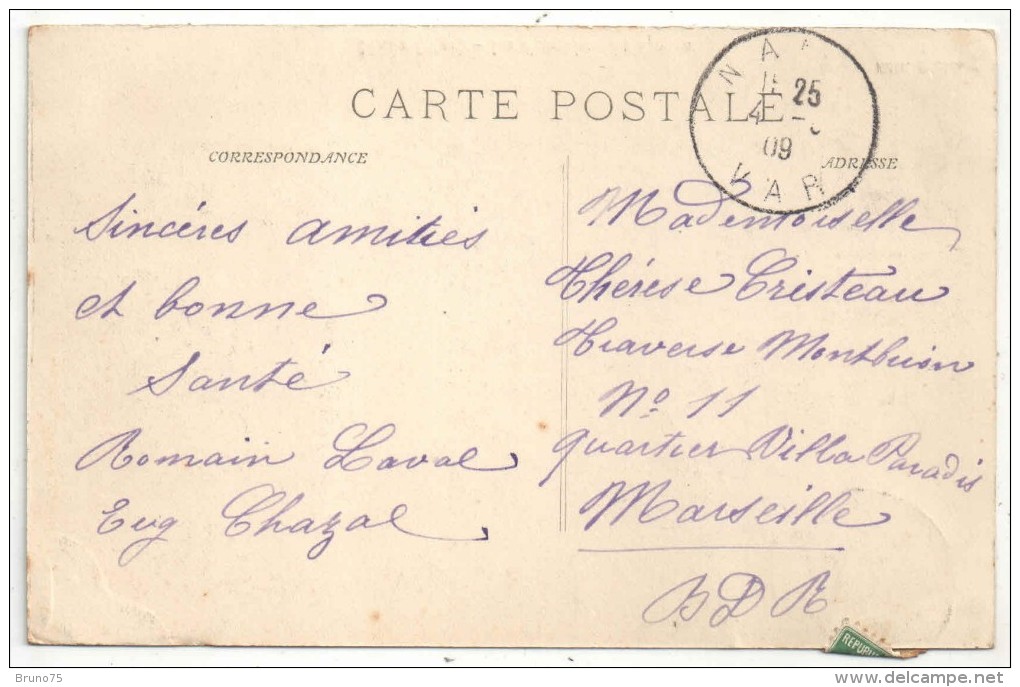 CARTE POSTALE
CORRESPONDANCE
Sincères amitiés
et bonne
Santé
Romain Laval
Eug Chazal
25
4
09
VAR
ADRESSE
Mademoiselle
Thérèse Cristeau
Traverse Montbrion
No 11
quartier Villa Paradis
Marseille
BDR
Bruno75
delcampe.net